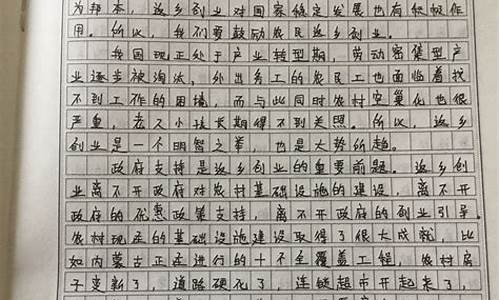 为邦本,返乡创业对国家稳定发展也有积极作
用。所以,我们要鼓励农民返乡创业。
我国现正处于产业转型期,劳动密集型产
业逐步被淘汰,外出务工的农民工也面临着找
不到工作的困境,而与此同时农村空巢化也很
严重,老人小孩长期得不到关照。所以,返乡
创业是一个明智之举,也是大势所趋。
政府支持是返乡创业的重要前题。返乡创
业离不开政府对农村基础设施的建设,离不开
政府的优惠政策支持,离不开政府的创业引导。
农村现在的基础设施建设取得了很大成就,比
如内蒙古正在进行的十个全覆盖工程,农村房
子变新了,道路硬化了,连锁超市开起来了,